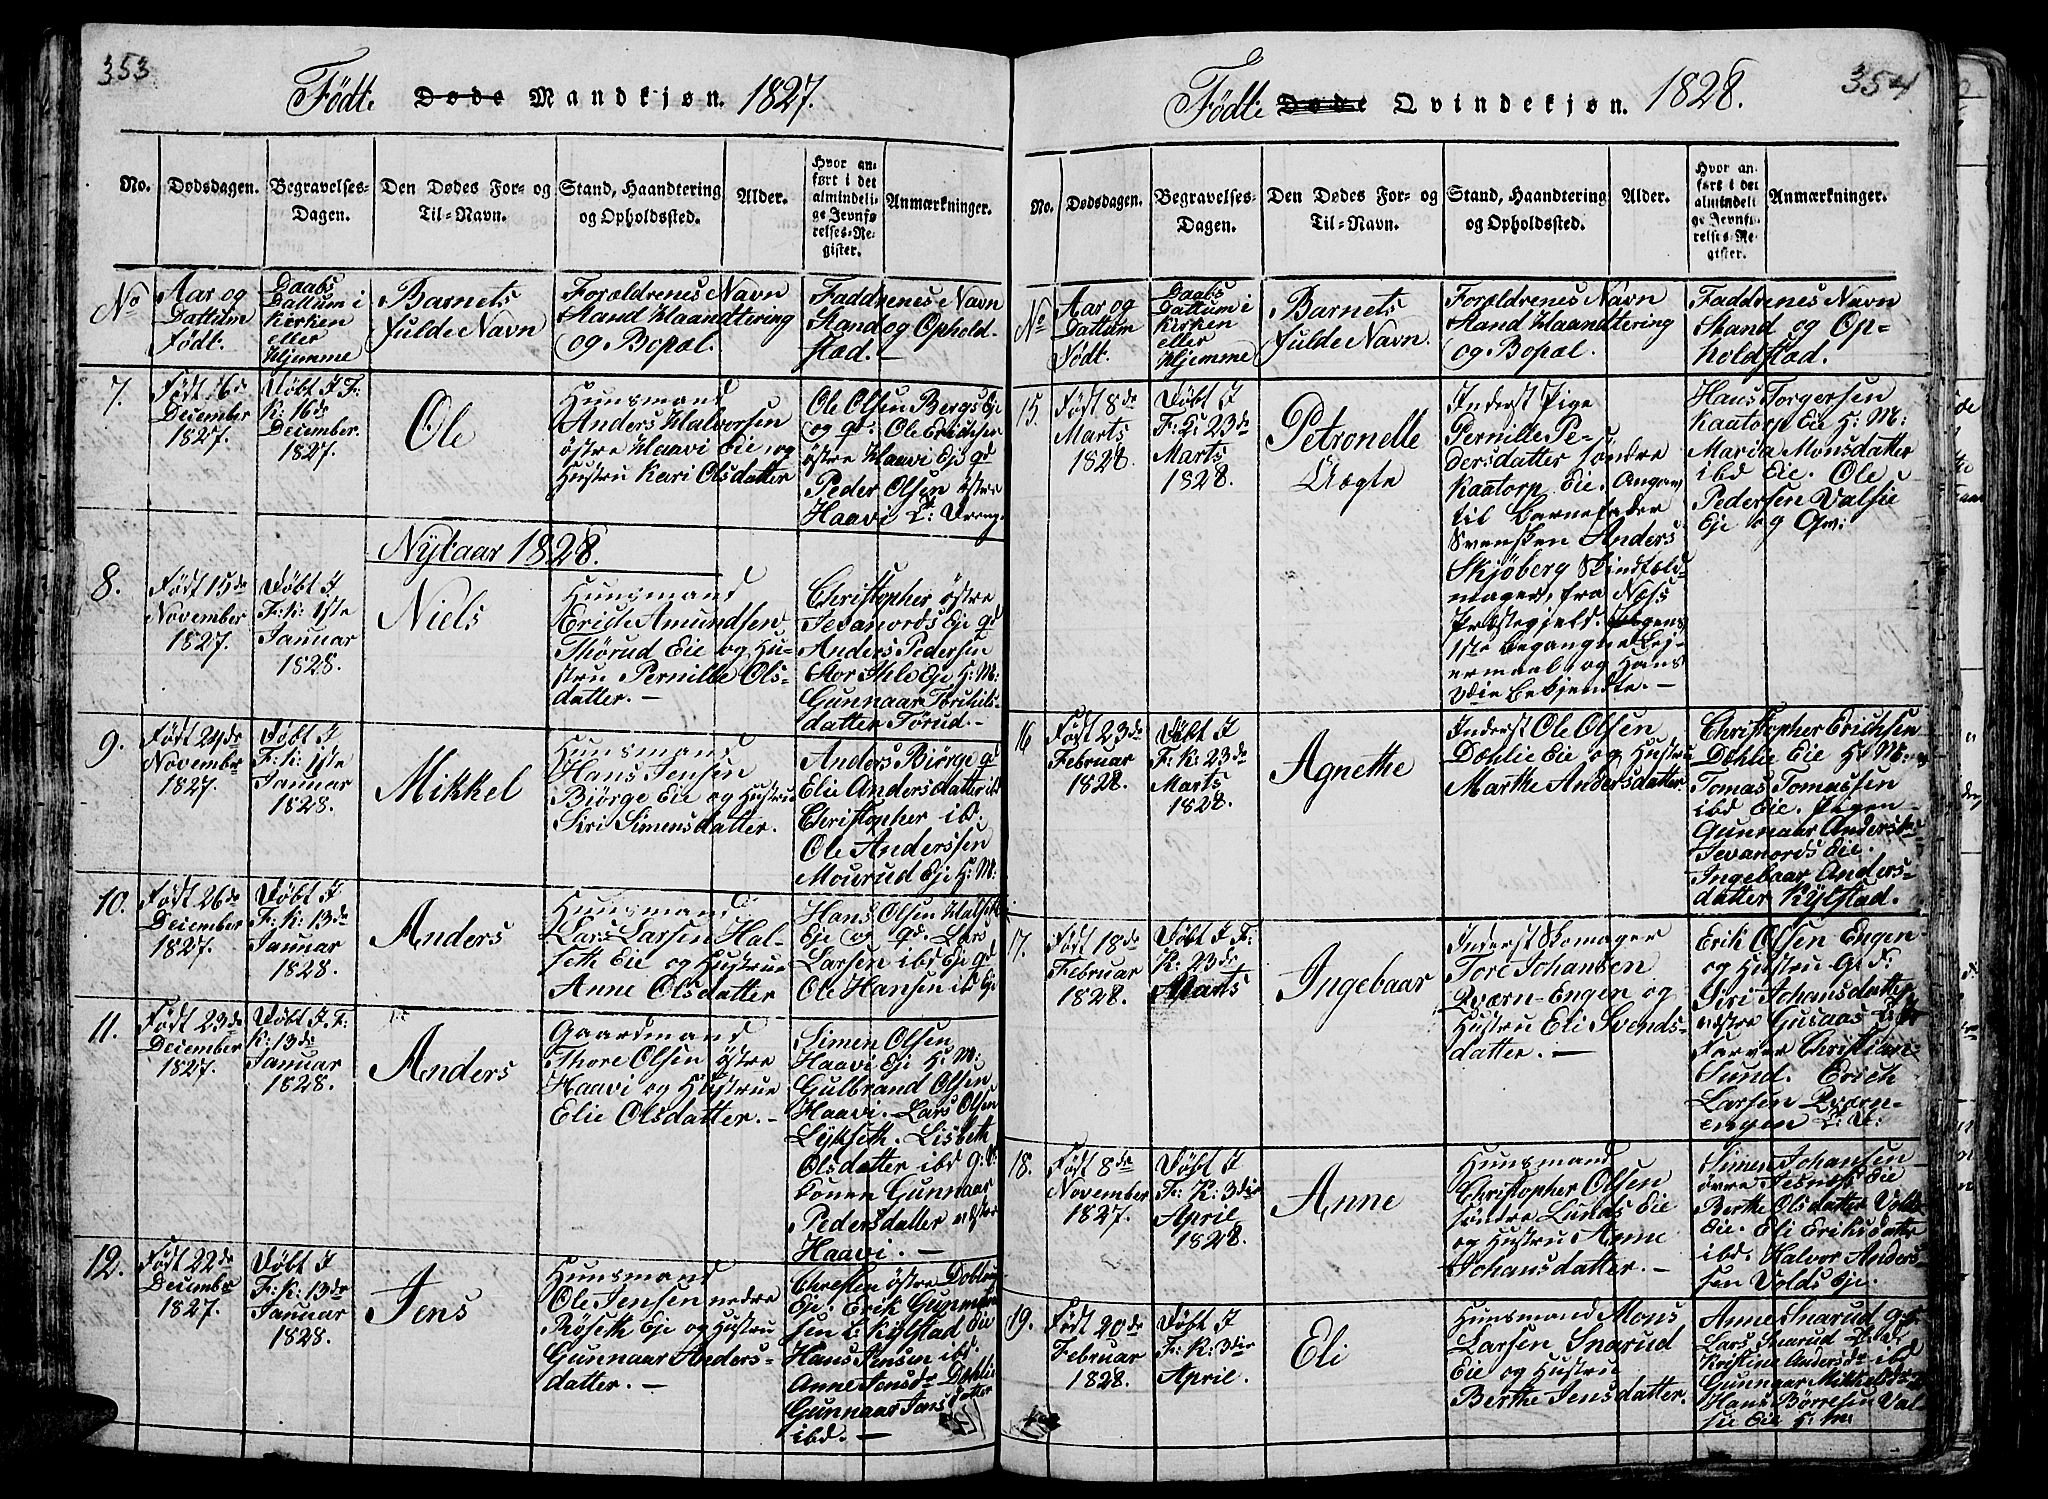 353
Födte Døde Mandkjøn. 1827.
No. Dødsdagen. Begravelses-Dagen. Den Dødes For- og Til-Navn. Stand, Haandtering og Opholdssted. Alder. Hvor anført i det almindelige Jevnførelses-Register. Anmærkninger.
No
Aar og
Dattum
födt.
Daabs
Dattum i
Kirken
eller
Hjemme
Barnets
fulde Navn
Forældrenes Navn
Stand Haandtering
og Bopæl.
Faddrenes Navn
Stand og Ophold-
stad. —
7.
Födt 16de
December
1827.
Döbt I F:
K: 16de
December.
1827.
Ole
Huusmand
Anders Halvorsen
östre Haavi Eie, og
Hustru Kari Olsdatter
Ole Olsen Bergs Eje
og qd: Ole Erichsen
östre Haavi Eje qd
Peder Olsen östre
Haavi L: Dreng.
Nytaar 1828.
8.
Födt 15de
November
1827.
Döbt I
F: K: 1ste
Januar
1828.
Niels
Huusmand
Erich Amundsen
Thørud Eie og Hu-
stru Pernille Ols-
datter. —
Christopher östre
Jevanords Eje qd
Anders Pedersen
Stor Ihle Eje H: M:
Gunnaar Torkils-
datter Tørud. —
9.
Födt 24de
November
1827.
Döbt I
F: K: 1ste
Januar
1828.
Mikkel
Huusmand
Hans Jensen
Biörge Eie og Hustru
Siri Simensdatter.
Anders Biörge qd
Elie Andersdatter ibd
Christopher ibd.
Ole Anderssen
Mourud Eje H: M:
10.
Födt 26de
December
1827.
Döbt I
F: K: 13de
Januar
1828.
Anders
Huusmand
Lars Larsen Hal-
seth Eie og Hustrue
Anne Olsdatter
Hans Olsen Halseth
Eje og qd. Lars
Larsen ibd Eje qd
Ole Hansen ibd Eje
11.
Födt 23de
December
1827.
Döbt I F:
K: 13de
Januar
1828.
Anders
Gaardmand
Thore Olsen östre
Haavi og Hustrue
Elie Olsdatter. —
Simen Olsen
Haavi Eje H: M:
Gulbrand Olsen
Haavi. Lars Olsen
Lykseth. Lisbeth
Olsdatter ibd
Konen Gunnaar
Pedersdatter vestre
Haavi. —
12.
Födt 22de
December
1827.
Döbt I
F: K: 13de
Januar
1828.
Jens
Huusmand
Ole Jensen nedre
Röseth Eje og Hustru
Gunnaar Anders-
datter. —
Christen östre
Eje: Erik
sen Kylstad Eie
Hans Jensen ibd.
Anne Jensdr Döhlie
Gunnaar Jensdatter
ibd. —
354
Födte Døde Qvindekjøn. 1828.
No. Dødsdagen. Begravelses-Dagen. Den Dødes For- og Til-Navn. Stand, Haandtering og Opholdssted. Alder. Hvor anført i det almindelige Jevnførelses-Register. Anmærkninger.
No
Aar og
Dattum
Födt.
Daabs
Dattum i
Kirken
eller
Hjemme
Barnets
fulde Navn
Forældrenes Navn
Stand Haandtering
og Bopæl.
Faddrenes Navn
Stand og Op-
holdstad.
15.
Födt 8de
Marts
1828.
Döbt I
F: K: 23de
Marts
1828.
Petronelle
Uægte
Inderst Pige
Pernille Pe-
dersdatter söndre
Kaatorp Eie. Angiven
til Barnefader
Svensken Anders
Skjöberg Skindfeld-
mager, fra Næss
Præstegjeld.
1ste begangne Lej-
ermaal og Hans
Hans Torgersen
Kaatorp Eie H: M:
Marita Monsdatter
ibd Eie. Ole
Pedersen Valsie
Eje og
16
Födt 23de
Februar
1828.
Döbt I
F: K: 23de
Marts
1828.
Agnethe
Inderst Ole Olsen
Döhlie Eie og Hustru
Marthe Andersdatter
Christopher Erichsen
Döhlie Eie H: M:
Tomas Tomassen
ibd Eie. Pigen
Gunnaar Andersdr
Jevanords Eie.
Ingebaar Anders-
datter Kylstad.
17.
Födt 18de
Februar
1828.
Döbt I F:
K: 23de
Marts
Ingebaar
Inderst Skomager
Tore Johansen
Qværn-Engen og
Hustru Eli Svends-
datter. —
Erik Olsen Engen
og Hustru
Siri Johansdatter
vestre Gusaas
Farver Christian
Sund. Erich
Larsen Qværn-
engen
18.
Födt 8de
November
1827.
Döbt I
F: K: 3die
April
1828.
Anne
Huusmand
Christopher Olsen
söndre Lunds Eie
og Hustru Agne
Johansdatter. —
Simen Johansen
övre Eie
Berthe Olsdatter Volds
Eie. Eli Eriksdatter
ibd. Halvor Anders-
sen Volds Eje.
19.
Födt 20de
Februar
1828.
Döbt I
F: K: 3die
April.
Eli
Huusmand Mons
Larsen Snarud
Eie og Hustru
Berthe Jensdatter.
Anne Snarud
Lars Snarud
Kristine Andersdr ibd
Gunnaar
Hans Börresen Val-
sie Eie